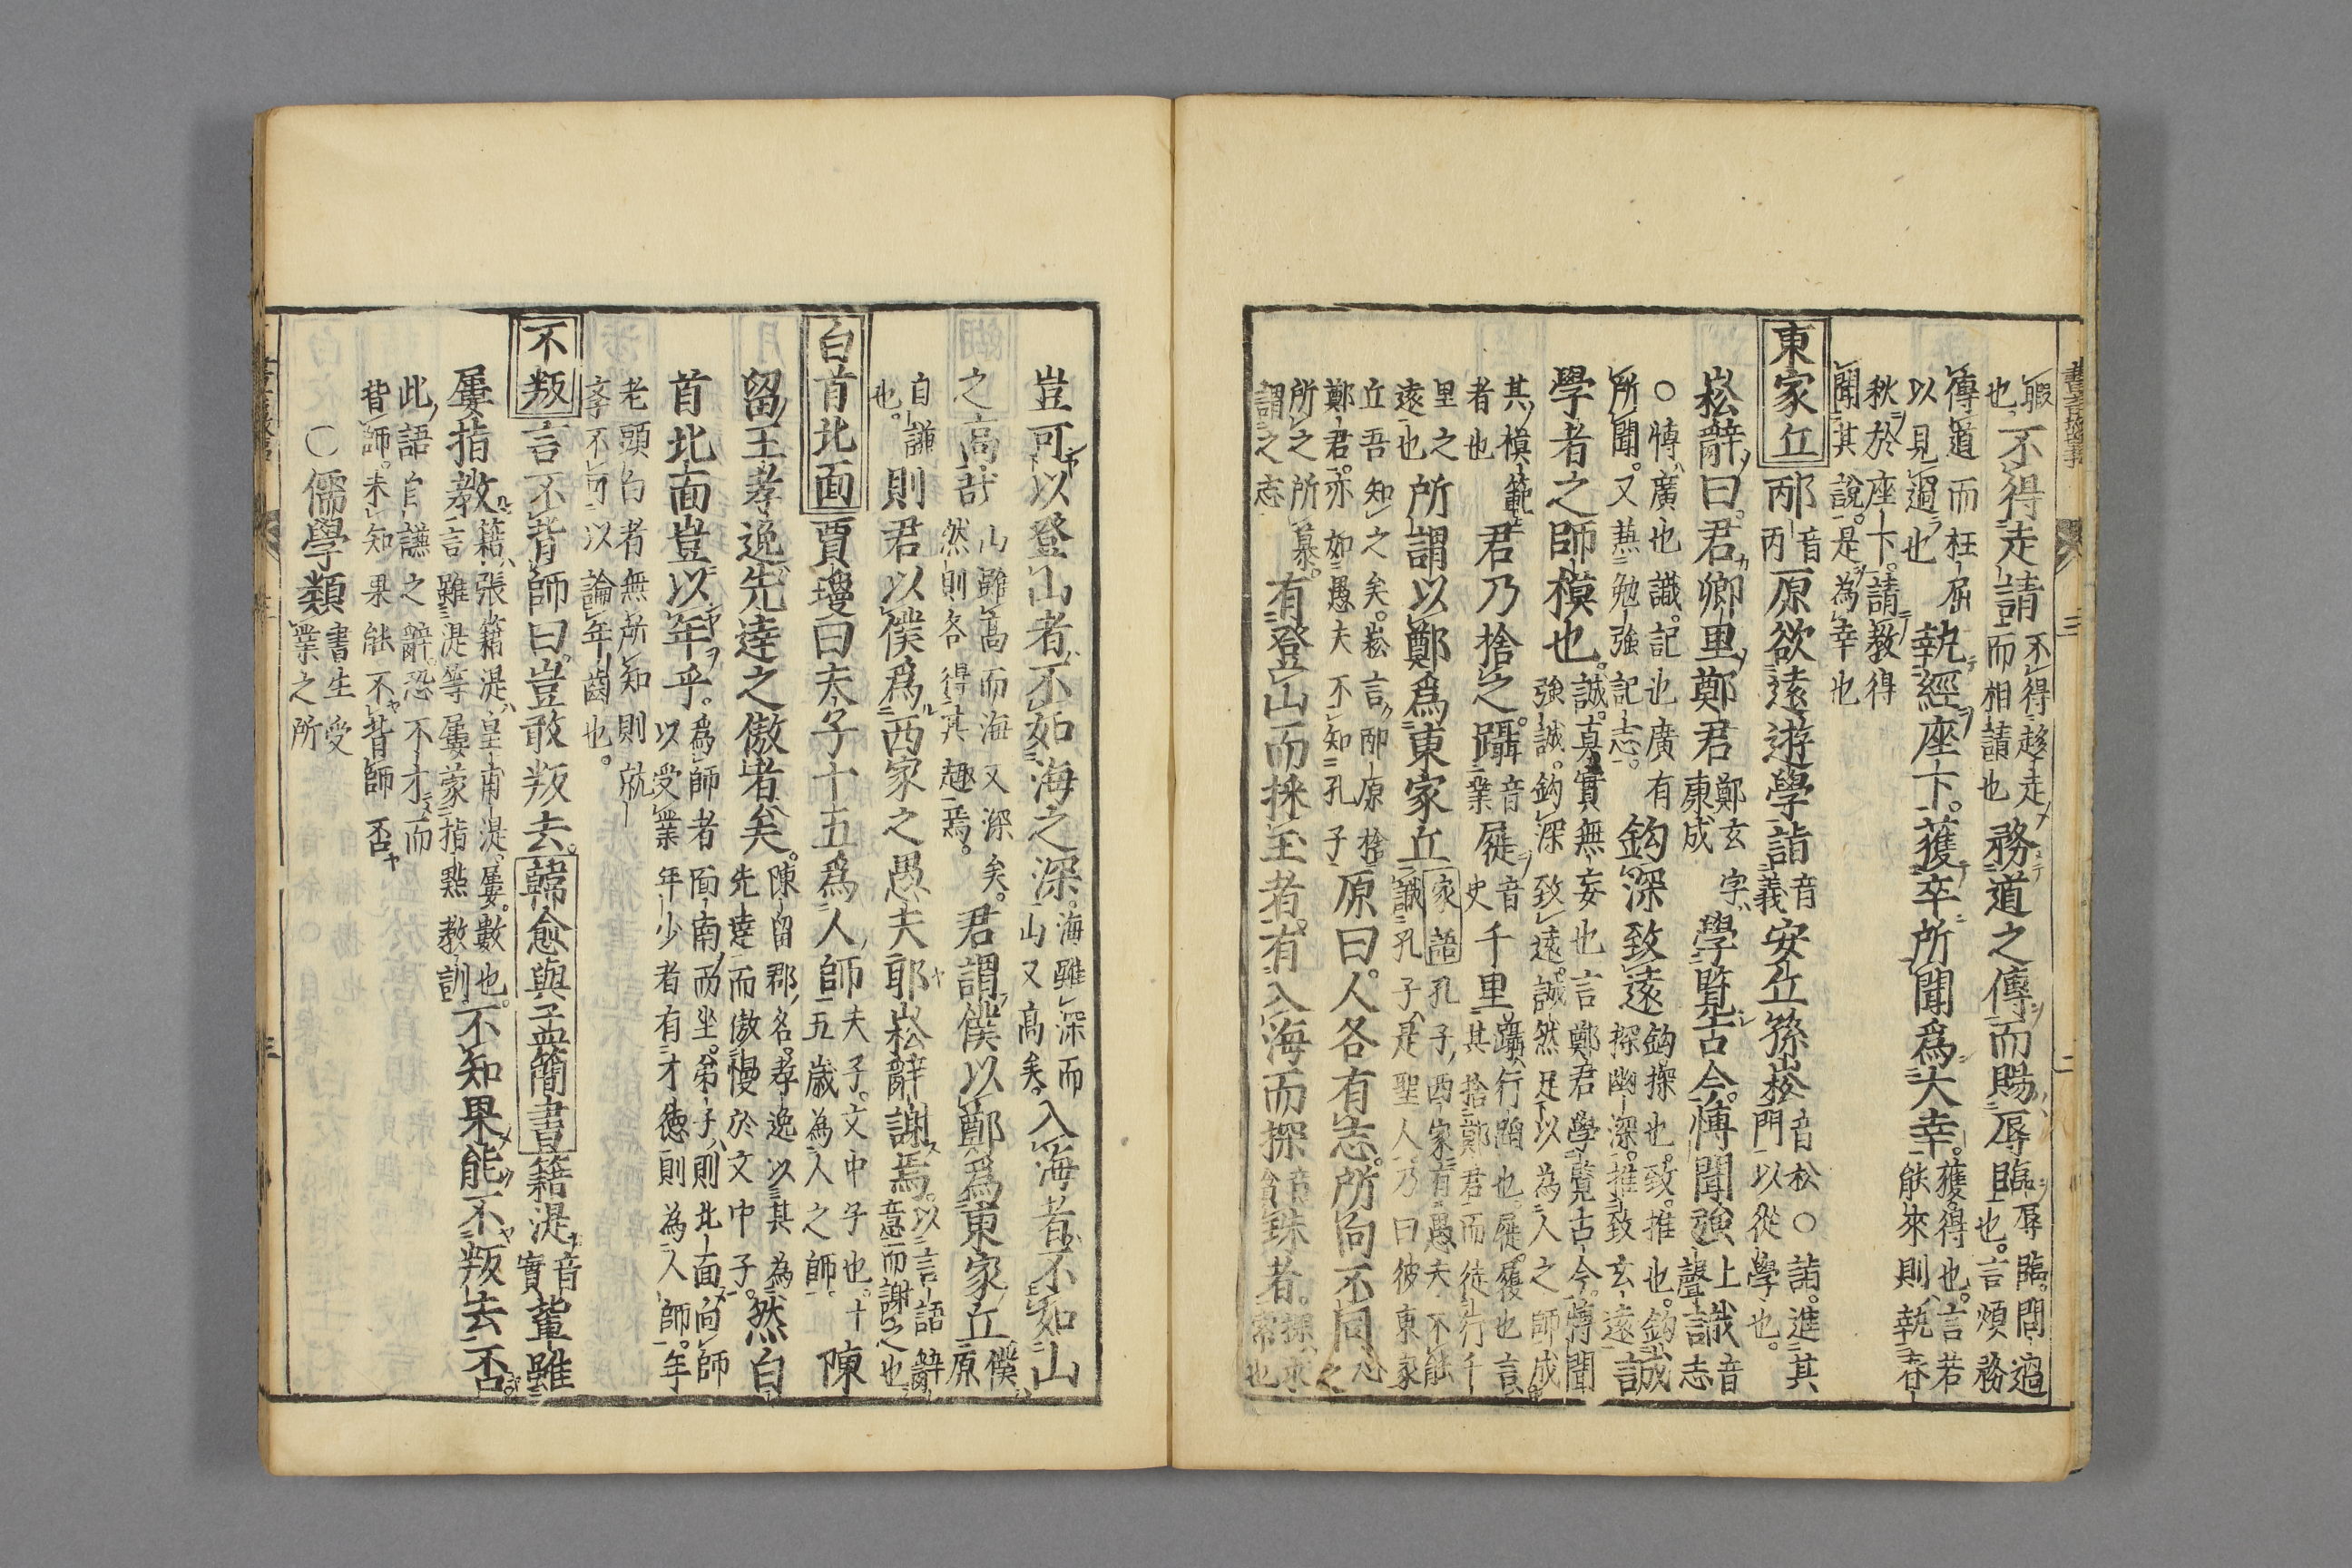 暇不得走請不得趍走
也而相請也務道之傳而賜辱臨辱臨問過
且也言煩務
傳道而枉屈執經座下獲卒所聞爲大幸獲得也言若
以見過也能來則執春
秋於座下請教得
聞其說是為幸也
東家丘邴音丙原欲遠遊學詣音義安丘孫崧音松○詣進其
門以從學也
崧辭曰君鄉里鄭君鄭玄字康成學覽古今博聞強上聲識音志
○博廣也識記也廣有
所聞又兼勉強記志鈎深致遠鈎探也致推也鈎
探幽深推致玄遠誠
學者之師模也誠真實無妄也言鄭君學覽古今博聞
強識鈎深致遠誠然足以為人之師成
其模範
者也君乃捨之躡音業屣音史千里躡行蹈也屣履也言
其捨鄭君而徒行千
里之
遠也所謂以鄭爲東家丘家語孔子西家有愚夫不能
識孔子是聖人乃曰彼東家
丘吾知之矣崧言邴原捨
鄭君亦如愚夫不知孔子原曰人各有志所向不同
所之所慕
謂之志有登山而採玉者有入海而探音貪珠者
豈可以登山者不如海之深海雖深而
山又高矣入海者不如山
之高哉山雖高而海又深矣
然則各得其趣焉君謂僕以鄭爲東家丘僕原
自謙
也則君以僕爲西家之愚夫耶崧辭謝焉以言語辭
意而謝之也
白首北面賈瓊曰夫子十五爲人師夫子文中子也十
五歲為人之師陳
留王孝逸先達之傲者矣陳留郡名孝逸以其為
先達而傲慢於文中子然白
首北面豈以年乎為師者面南而坐弟子則北面向師
以受業年少者有才德則為人師年
老頭白者無所知則就
學不可以論年齒也
不叛言不背師曰豈敢叛去韓愈與孟簡書籍湜音實輩雖
屢指教籍張籍湜皇甫湜屢數也
言雖湜等屢蒙指點教訓不知果能不叛去否
此語自謙之辭恐不才而
背師未知果能不背師否
○儒學類書生受
業之所